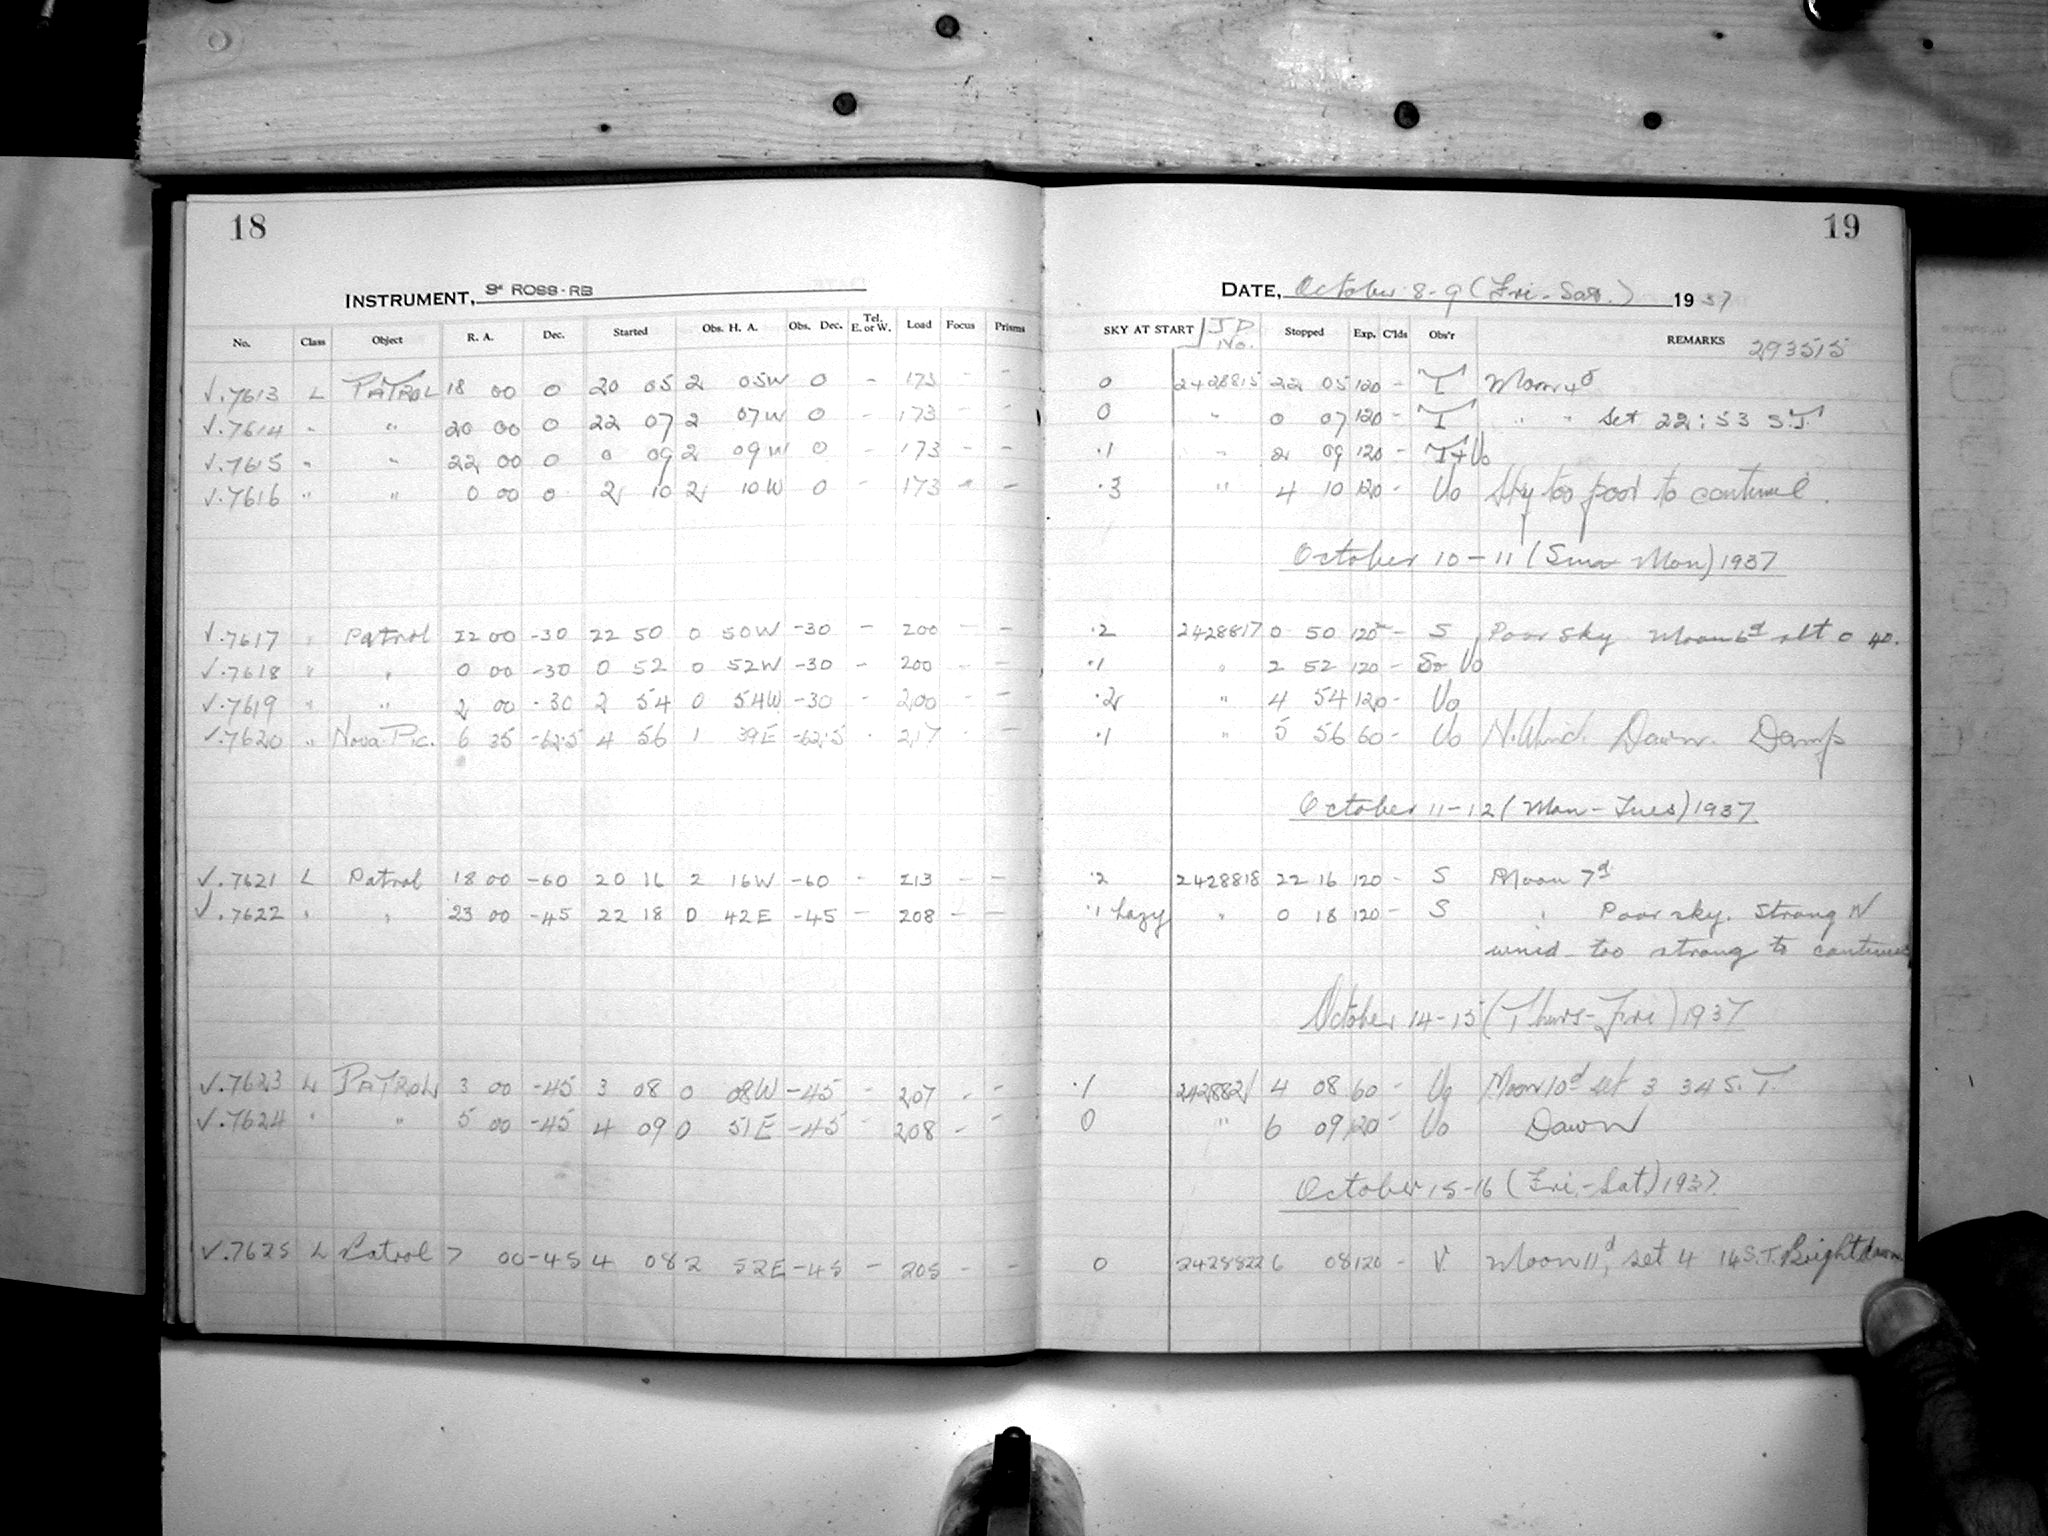 18
INSTRUMENT, 3" ROSS-RB
No. Class Object R. A. Dec. Started Obs. H. A. Obs. Dec. Tel. E. or W. Load Focus Prisms
√.7613 L PATROL 18 00 0 20 05 2 05W 0 - 173 - -
√.7614 " " 20 00 0 22 07 2 07W 0 - 173 - -
√.7615 " " 22 00 0 0 09 2 09W 0 - 173 - -
√.7616 " " 0 00 0 2 10 2 10W 0 - 173 - -
√.7617 " Patrol 22 00 -30 22 50 0 50W -30 - 200 - -
√.7618 " " 0 00 -30 0 52 0 52W -30 - 200 - -
√.7619 " " 2 00 -30 2 54 0 54W -30 - 200 - -
√.7620 " Nova Pic. 6 35 -62.5 4 56 1 39E -62.5 - 217 - -
√.7621 L Patrol 18 00 -60 20 16 2 16W -60 - 213 - -
√.7622 " " 23 00 -45 22 18 0 42E -45 - 208 - -
√.7623 L PATROL 3 00 -45 3 08 0 08W -45 - 207 - -
√.7624 " " 5 00 -45 4 09 0 51E -45 - 208 - -
√.7625 L Patrol 7 00 -45 4 08 2 52E -45 - 205 - -
19
DATE, October 8-9 (Fri-Sat.) 1937
SKY AT START J D No. Stopped Exp. C'lds Obs'r REMARKS 293515
0 2428815 22 05 120 - T Moon 4d
0 " 0 07 120 - T " " Set 22:53 S.T.
.1 " 2 09 120 - T+Vo
.3 " 4 10 120 - Vo Sky too poor to continue.
October 10-11 (Sun-Mon) 1937
.2 2428817 0 50 120 - S Poor sky Moon 6d alt 0 40.
.1 " 2 52 120 - S+Vo
.2 " 4 54 120 - Vo
.1 " 5 56 60 - Vo N.Wind. Dawn. Damp
October 11-12 (Mon-Tues) 1937
.2 2428818 22 16 120 - S Moon 7d
.1 hazy " 0 18 120 - S " Poor sky. Strong N
wind too strong to continue
October 14-15 (Thurs-Fri) 1937
.1 2428821 4 08 60 - Vo Moon 10d set 3 34 S.T.
0 " 6 09 120 - Vo Dawn
October 15-16 (Fri-Sat) 1937
0 2428822 6 08 120 - V Moon 11d, set 4 14 S.T. Bright dawn